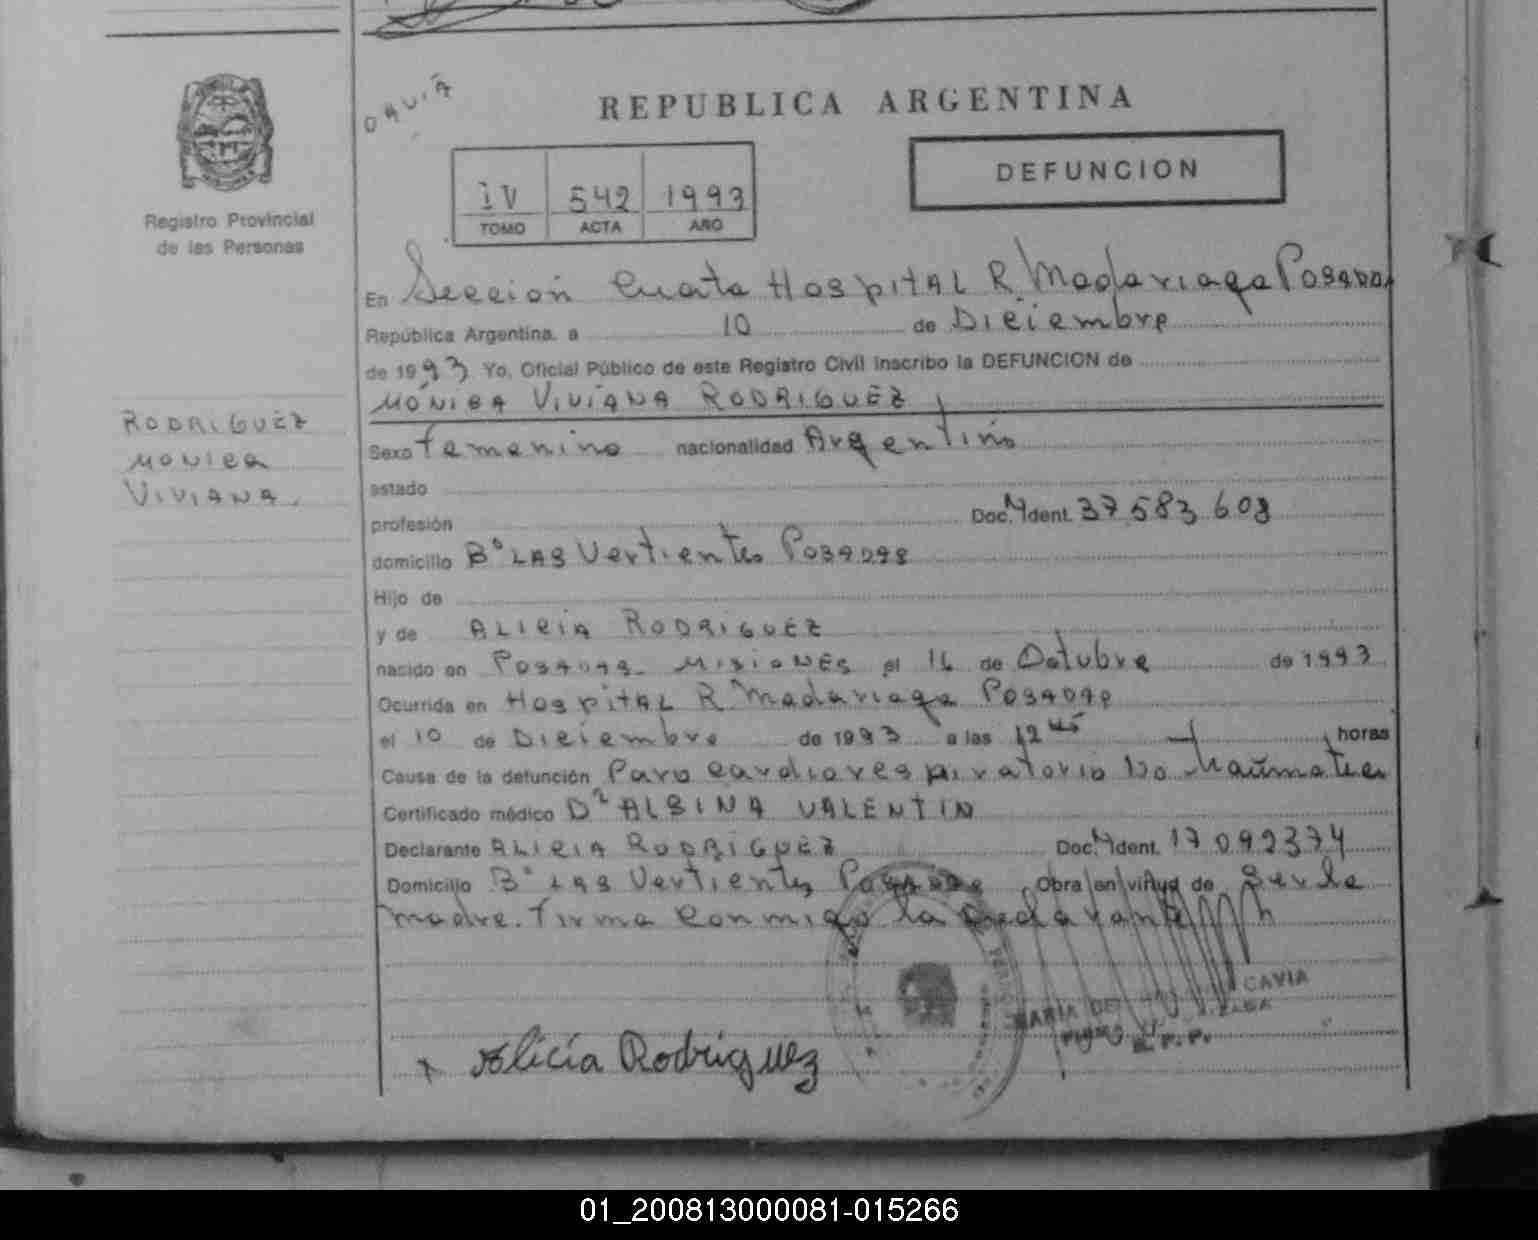 REPUBLICA ARGENTINA
DEFUNCION
IV 542 1993
TOMO ACTA AÑO
Registro Provincial
de las Personas
En Sección Cuarta Hospital R. Madariaga Posadas
República Argentina, a 10 de Diciembre
de 1993 Yo, Oficial Público de este Registro Civil inscribo la DEFUNCION de
MÓNICA VIVIANA RODRIGUEZ
RODRIGUEZ
MONICA
VIVIANA.
Sexo Femenino nacionalidad Argentino
estado
profesión Doc. Ident. 37.583.608
domicilio B° LAS Vertientes Posadas
Hijo de
y de ALICIA RODRIGUEZ
nacido en Posadas - MISIONES el 16 de Octubre de 1993
Ocurrida en HOSPITAL R Madariaga Posadas
el 10 de Diciembre de 1993 a las 12 45 horas
Causa de la defunción Paro cardiorespiratorio No traumatico
Certificado médico Dr ALBINA VALENTIN
Declarante ALICIA RODRIGUEZ Doc. Ident. 17.092374
Domicilio B° LAS Vertientes Posadas Obra en virtud de Ser la
madre. Firma conmigo la declarante
MARIA DEL CAVIA
R.P.P.
Alicia Rodriguez
01_200813000081-015266